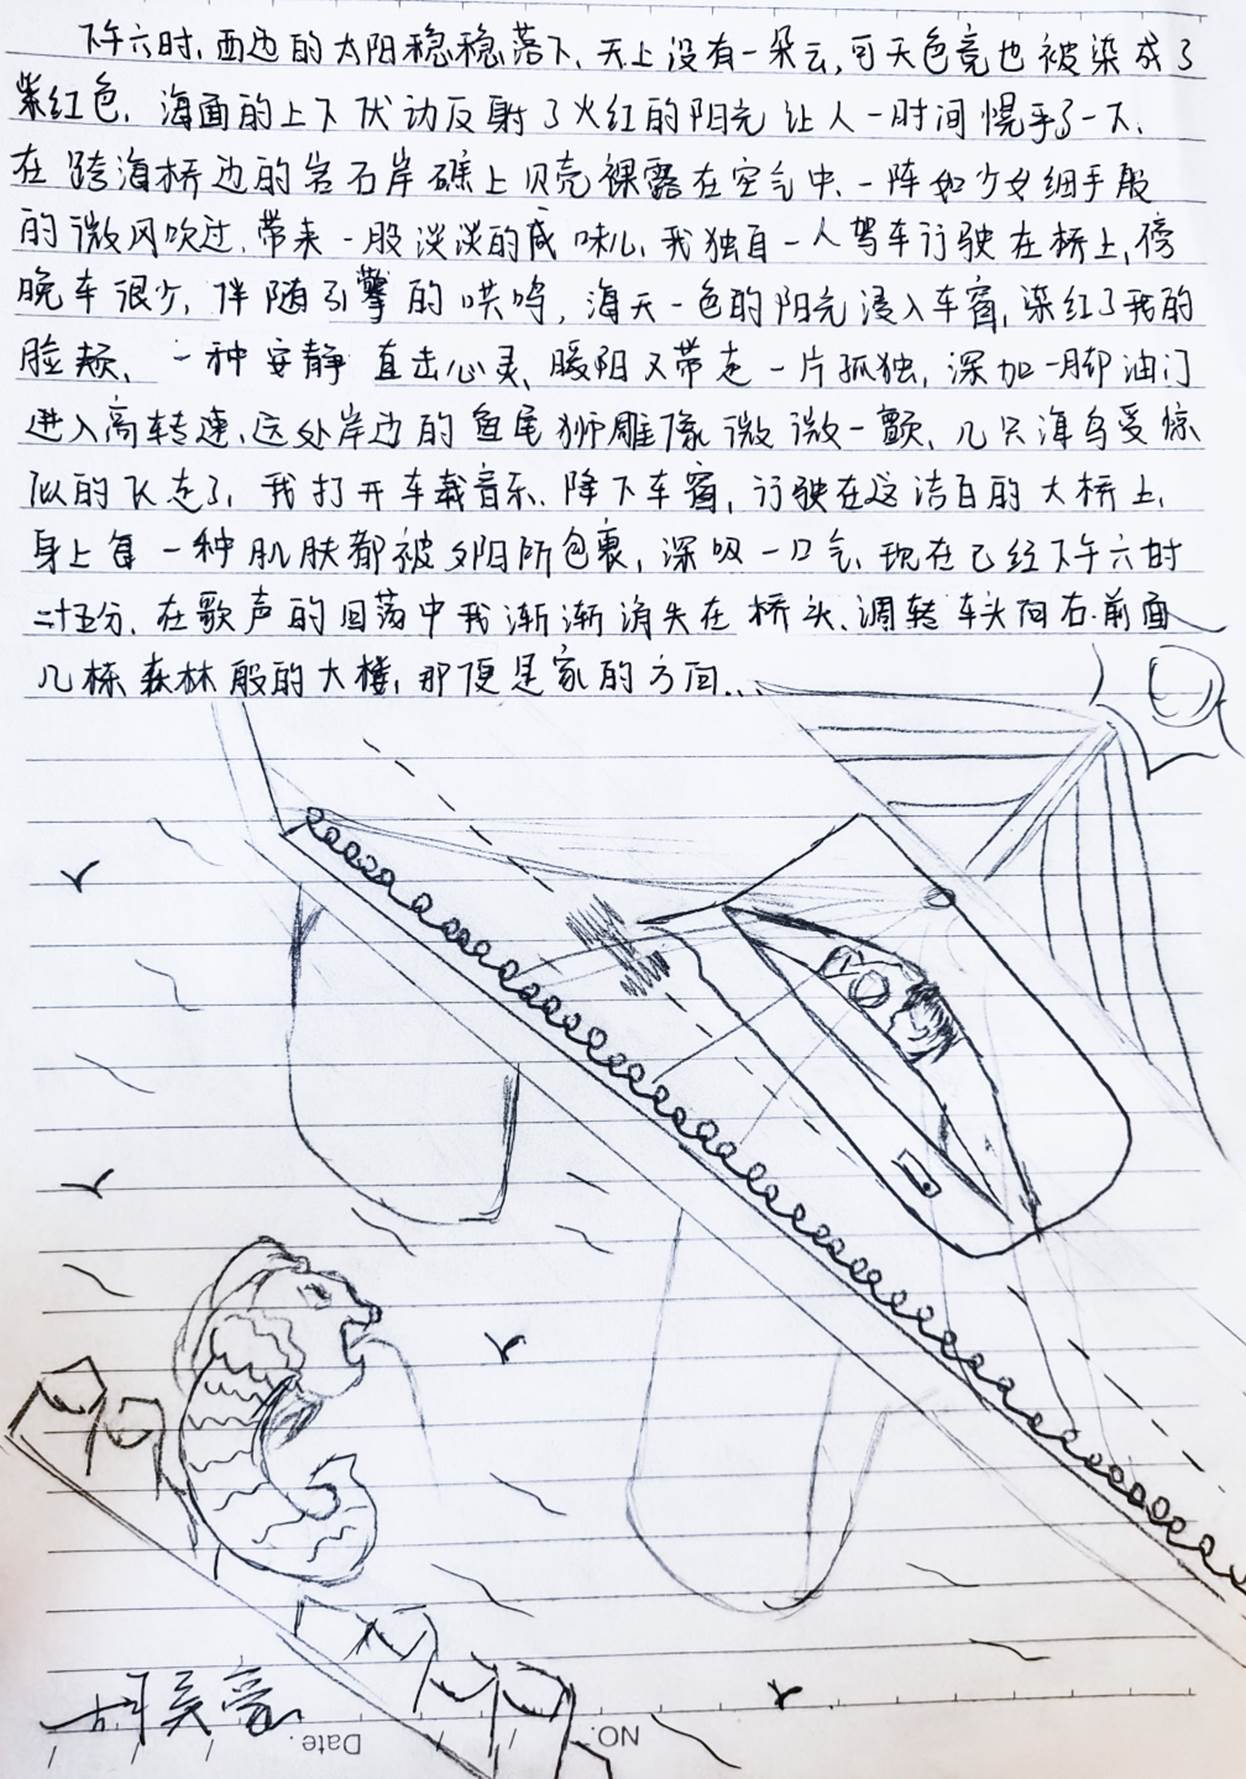 下午六时，西边的太阳稳稳落下、天上没有一朵云，可天色竟也被染成了
紫红色，海面的上下伏动反射了火红的阳光让人一时间愰乎了一下、
在跨海桥边的岩石岸礁上贝壳裸露在空气中、一阵如少女细手般
的微风吹过、带来一股淡淡的咸味儿、我独自一人驾车行驶在桥上，傍
晚车很少，伴随引擎的哄鸣，海天一色的阳光浸入车窗，染红了我的
脸颊、一种安静直击心灵、暖阳又带走一片孤独，深加一脚油门
进入高转速、远处岸边的鱼尾狮雕像微微一颤、几只海鸟受惊
似的飞走了，我打开车载音乐、降下车窗，行驶在这洁白的大桥上，
身上每一种肌肤都被夕阳所包裹，深吸一口气，现在已经下午六时
二十五分、在歌声的回荡中我渐渐消失在桥头、调转车头向右．前面
几栋森林般的大楼，那便是家的方向...
NO.
Date.